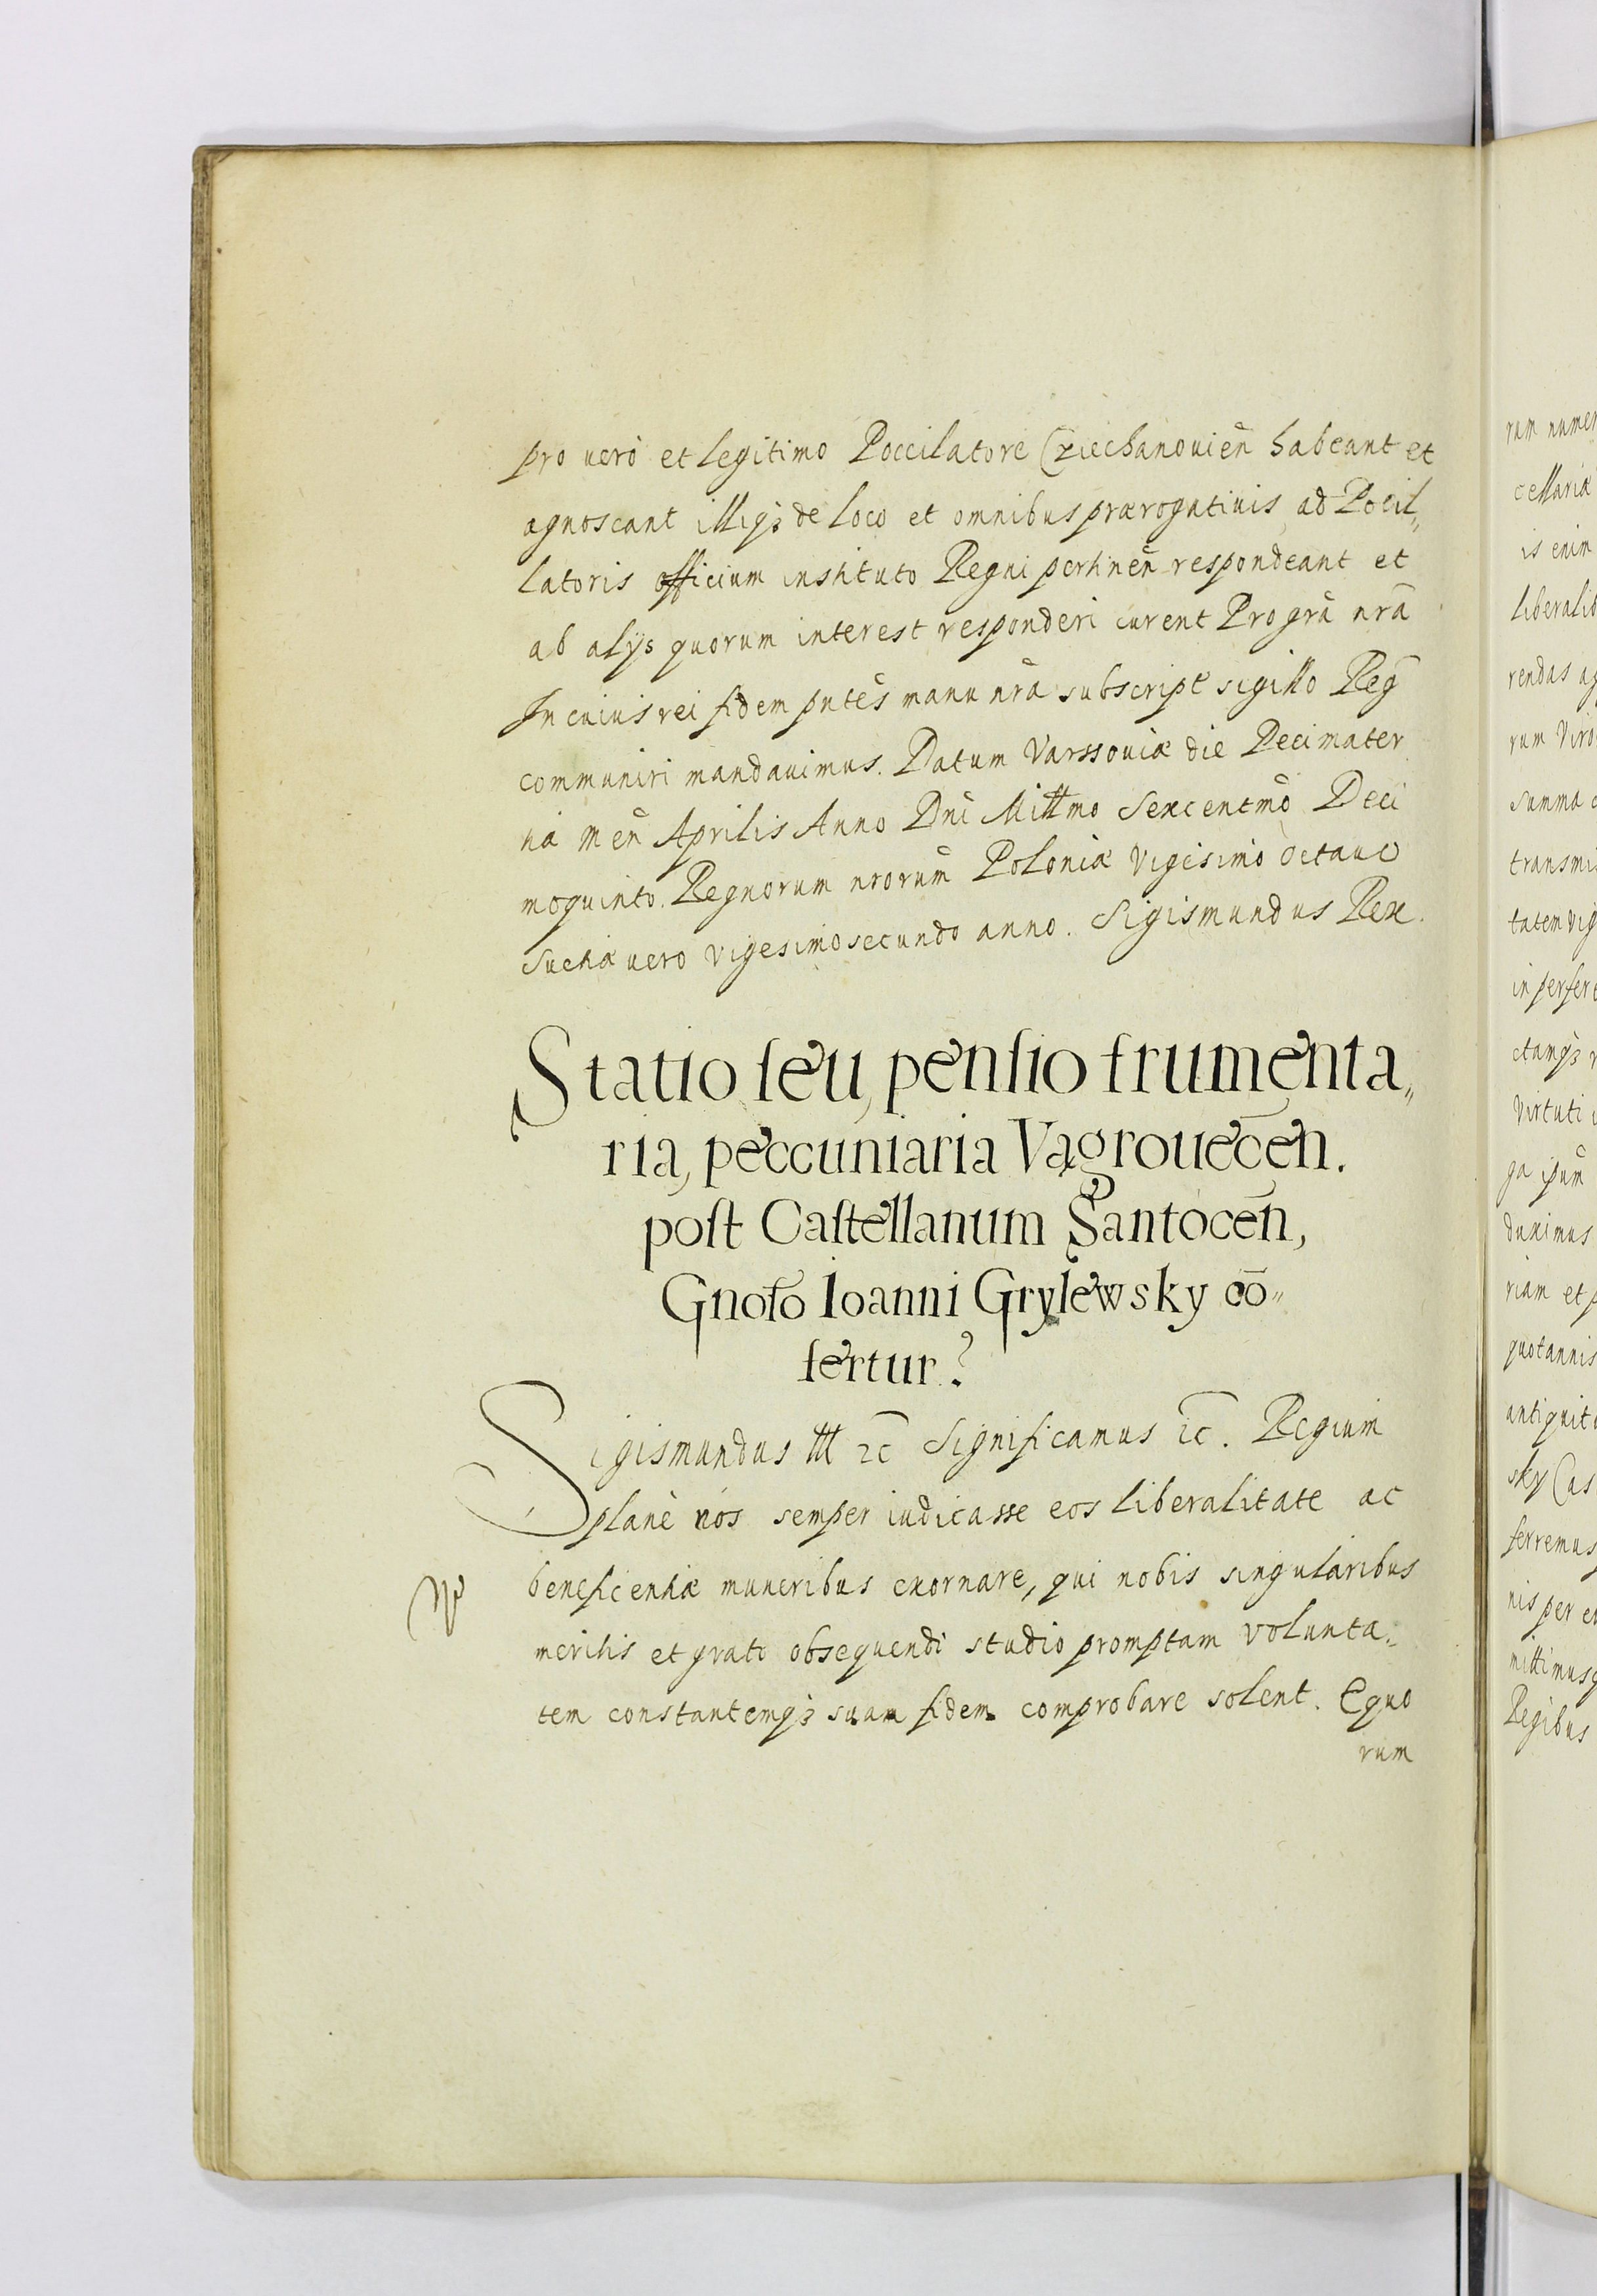 pro verò et legitimo Poccilatore Cziechanouien̄ habeant et
agnoscant illiqȝ de loco et omnibus prærogatiuis ad Pocil„
latoris officium instituto Regni pertinen̄ respondeant et
ab alijs quorum interest responderi curent Pro grā nrā
In cuius rei fidem pntēs manu nrā subscript sigillo Reḡ
communiri mandauimus. Datum Varssouiæ die Decimater
tia men̄ Aprilis Anno Dnī Millmo Sexcentmō Deci
moquinto. Regnorum nrorum̄ Poloniæ Vigesimo octauo
Sueciæ uero vigesimosecundo anno. Sigismundus Rex.
Statio seu, pensio frumenta„
ria, peccuniaria Vągrouecen̄.
post Castellanum Santocen̄,
Gnoso Ioanni Grylewsky cō„
fertur.
Sigismundus III ꝛc̄ Significamus ꝛc̄. Regium
planè nos semper iudicasse eos liberalitate ac
beneficentiæ muneribus exornare, qui nobis singularibus
meritis et grato obsequendi studio promptam volunta„
tem constantemqȝ suam fidem comprobare solent. Equo
rum
rum numer
cellariæ
is enim
liberalit
rendas ag
rum Viro
summa c
transmis
tatem vig
in perfer
ctamqȝ
Virtuti
ga ipum̄
duximus
riam et p
quotannis
antiquit
sky Cas
ferremus
nis per e
mittimusq
Regibus